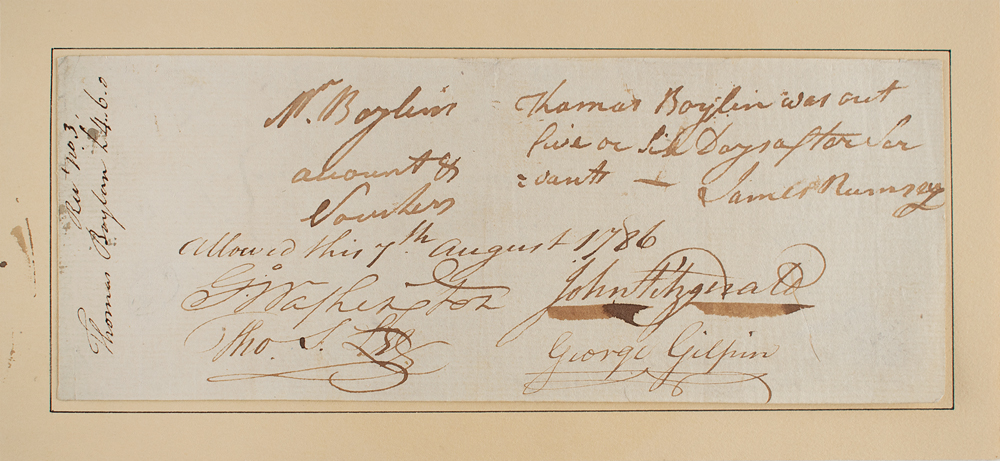 Rect No. 3
Thomas Boylan £4.6.0
Mr. Boylins
account &
Vouchers
Thomas Boylin was out
five or Six Days after Ser
=vants —
James Rumsey
Allowed this 7th august 1786
Go. Washington
John Fitzgerald
Tho. S. Lee
George Gilpin